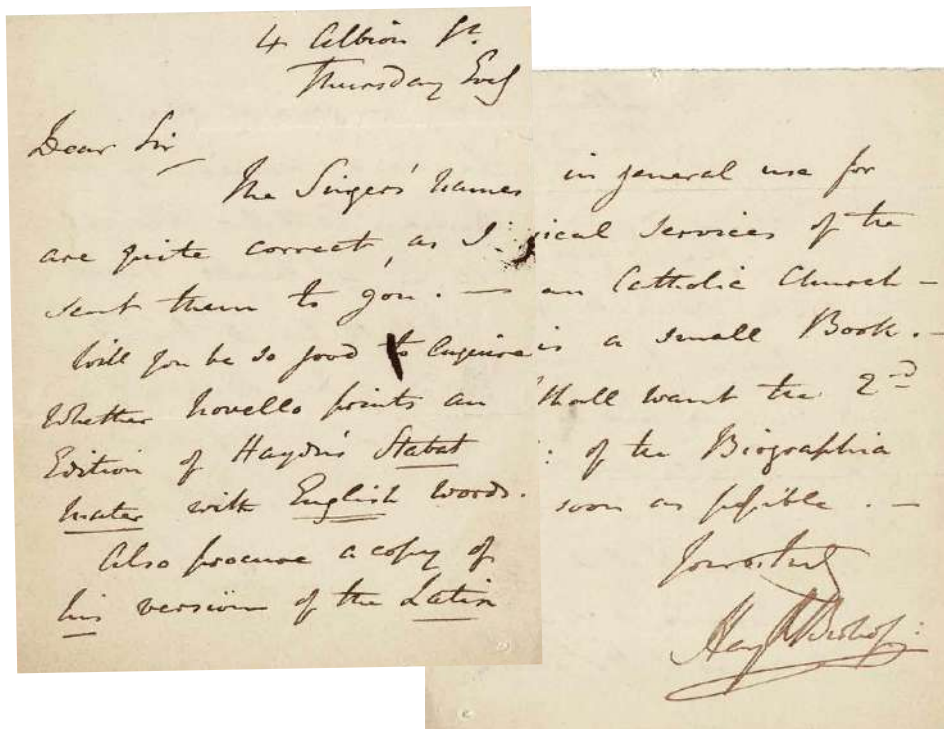 4 Albion St.
Thursday Evg
Dear Sir
The Singers' names
are quite correct, as I
sent them to you. —
Will you be so good to enquire
Whether Novello prints an
Edition of Haydn's Stabat
Mater with English words.
Also procure a copy of
his version of the Latin
in general use for
sical Services of the
an Catholic Church –
is a small Book. –
shall want the 2nd
: of the Biographia
soon as possible. –
Yours truly
Henry R Bishop